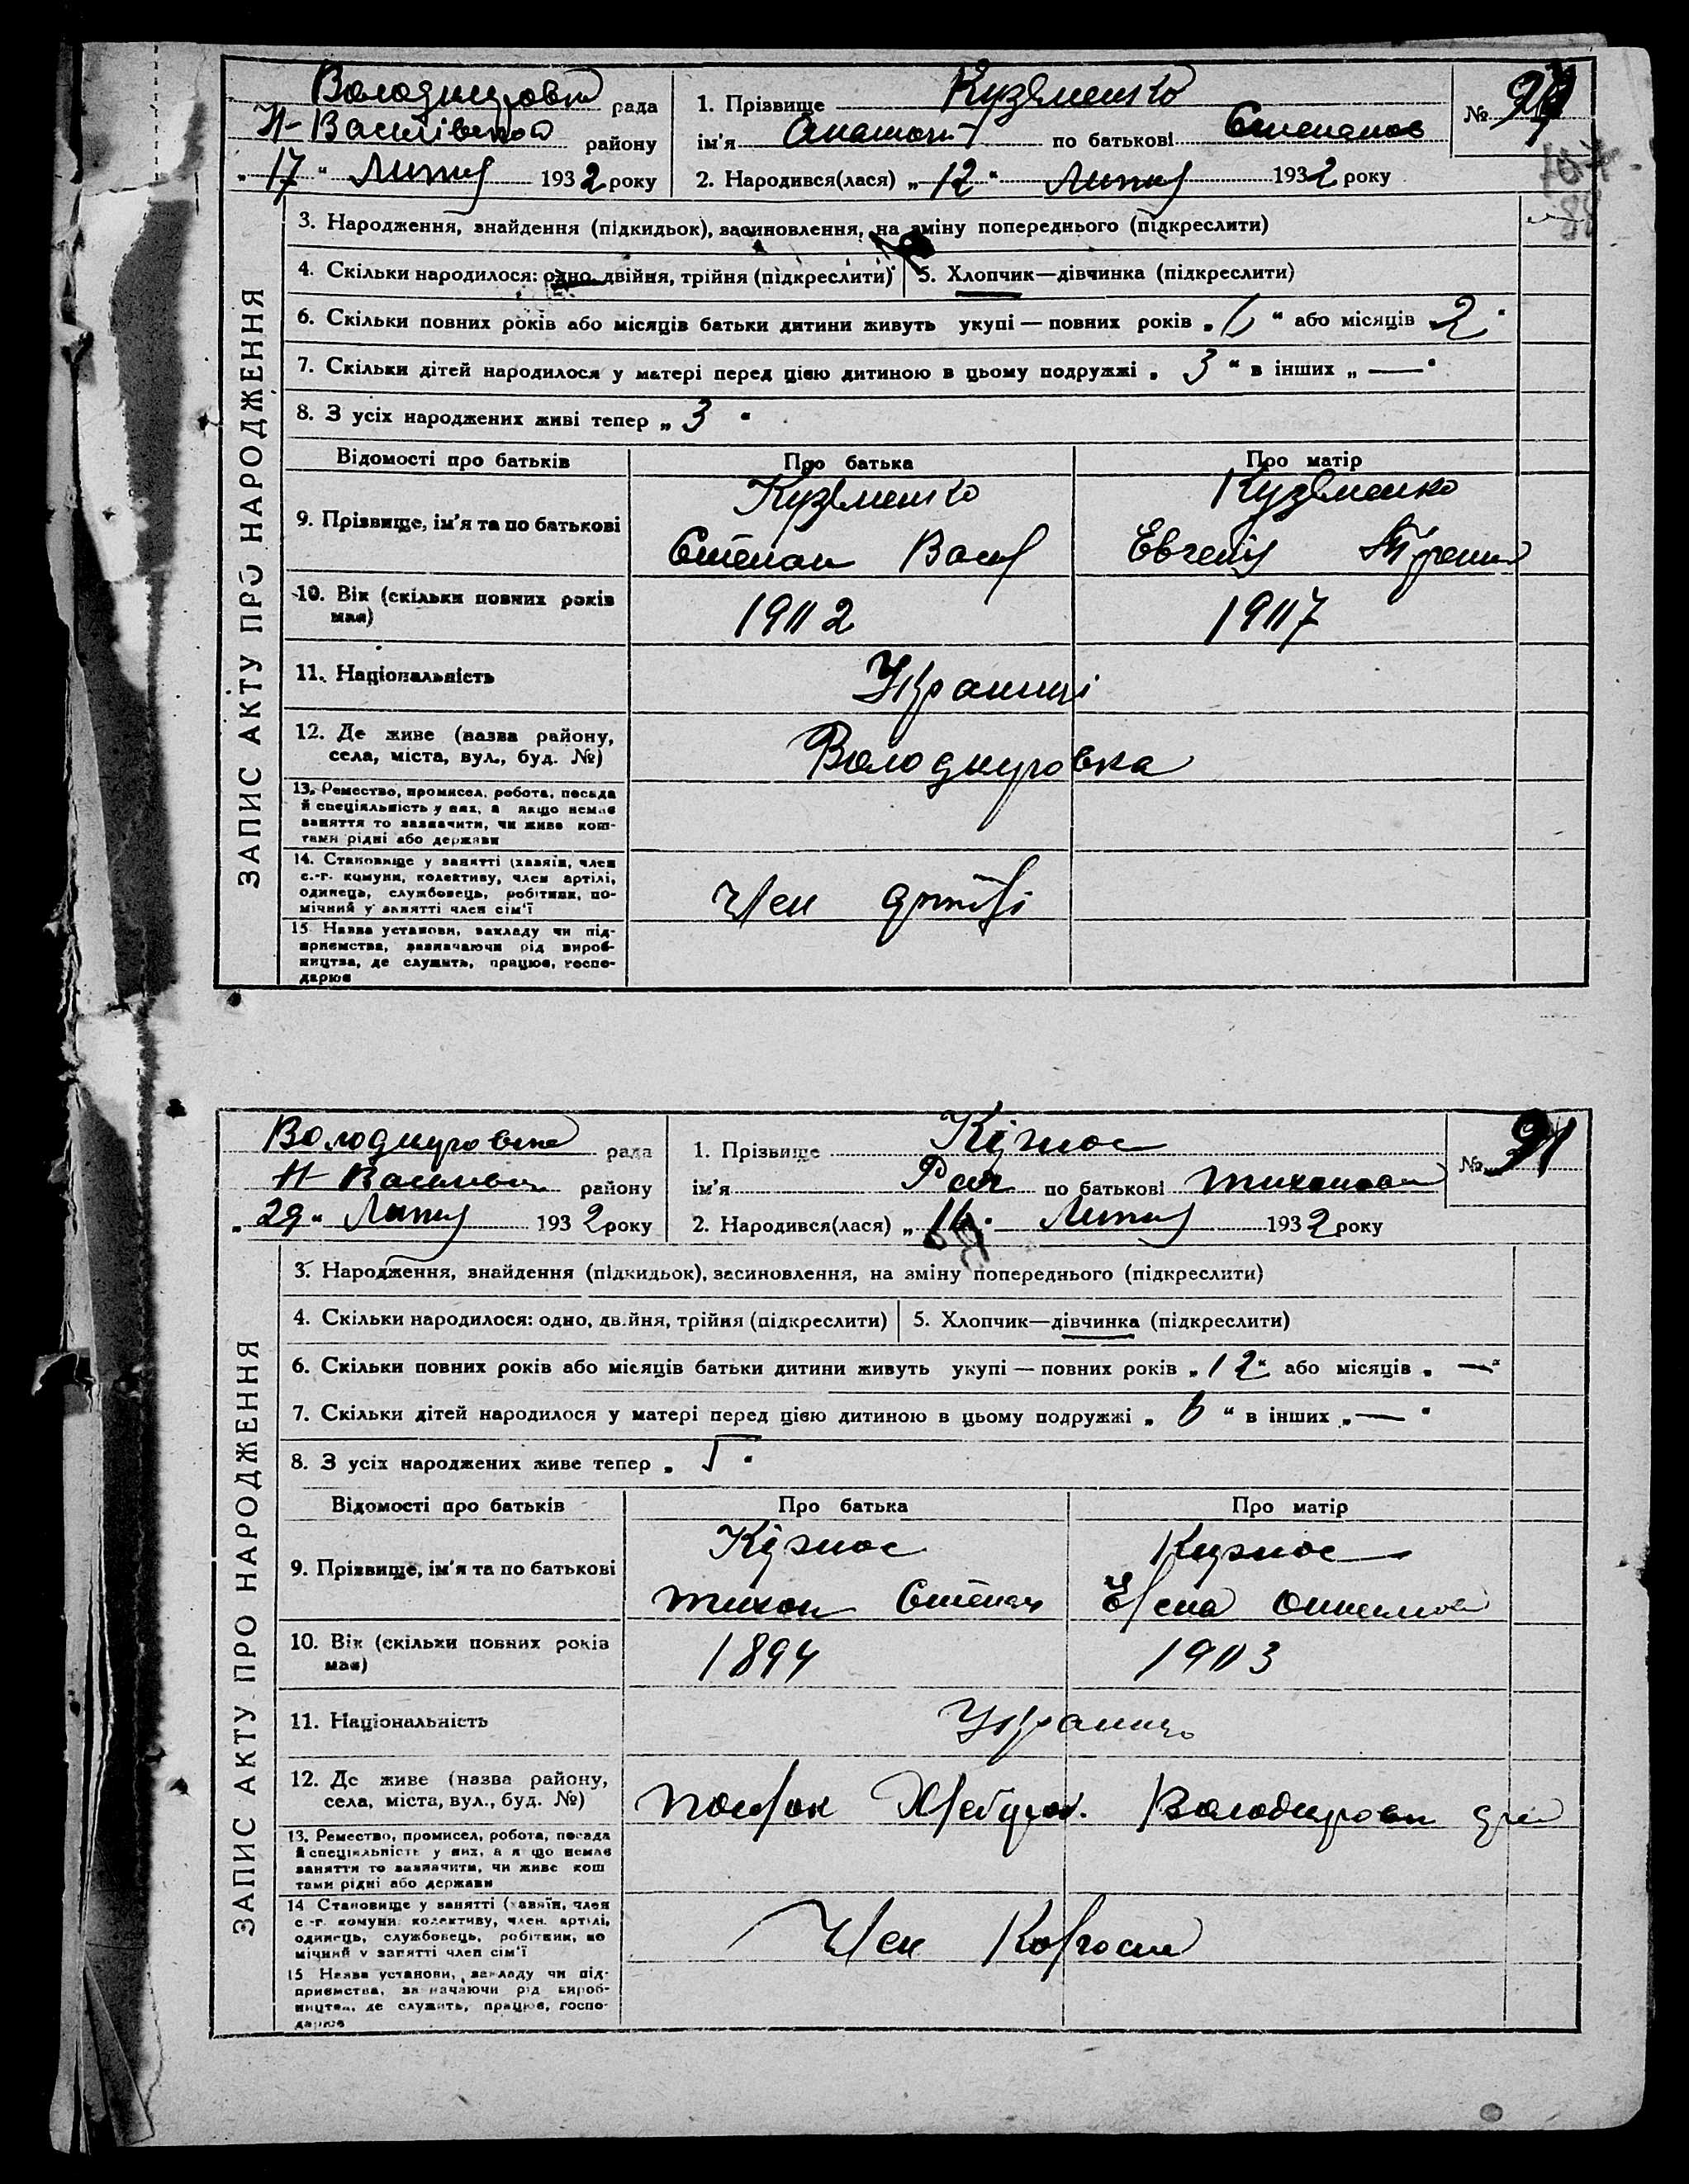 ЗАПИС АКТУ ПРО НАРОДЖЕННЯ
рада
Н-Василівской району
„17“ Липня 1932 року
1. Прізвище Кузьменко
ім'я Анатолій по батькові Степанов
2. Народився(лася) „12“ Липня 1932 року
№
3. Народження, знайдення (підкидьок), засиновлення, на зміну попереднього (підкреслити)
4. Скільки народилося: одно, двійня, трійня (підкреслити)
5. Хлопчик—дівчинка (підкреслити)
6. Скільки повних років або місяців батьки дитини живуть укупі — повних років „ “ або місяців „2“
7. Скільки дітей народилося у матері перед цією дитиною в цьому подружжі „3“ в інших „—“
8. З усіх народжених живі тепер „3“
Відомості про батьків Про батька Про матір
9. Прізвище, ім'я та по батькові
Кузьменко Кузьменко
Степан Васил Евгенія
10. Вік (скільки повних років має)
1902 1907
11. Національність
Украинці
12. Де живе (назва району, села, міста, вул., буд. №)
Володимировка
13. Ремество, промисел, робота, посада й спеціяльність у них, а якщо немає заняття то зазначити, чи живе коштами рідні або держави
14. Становище у занятті (хазяїн, член с.-г. комуни, колективу, член артілі, одинець, службовець, робітник, помічний у занятті член сім'ї
Член артілі
15. Назва установи, закладу чи підприємства, зазначаючи рід виробництва, де служить, працює, господарює
ЗАПИС АКТУ ПРО НАРОДЖЕННЯ
рада
району
„29“ Липня 1932 року
1. Прізвище
ім'я Рая по батькові Тихоновна
2. Народився(лася) „ “ Липня 1932 року
№ 91
3. Народження, знайдення (підкидьок), засиновлення, на зміну попереднього (підкреслити)
4. Скільки народилося: одно, двійня, трійня (підкреслити)
5. Хлопчик—дівчинка (підкреслити)
6. Скільки повних років або місяців батьки дитини живуть укупі — повних років „12“ або місяців „—“
7. Скільки дітей народилося у матері перед цією дитиною в цьому подружжі „6“ в інших „—“
8. З усіх народжених живе тепер „5“
Відомості про батьків Про батька Про матір
9. Прізвище, ім'я та по батькові
Тихон Степан Елена
10. Вік (скільки повних років має)
1894 1903
11. Національність
12. Де живе (назва району, села, міста, вул., буд. №)
13. Ремество, промисел, робота, посада й спеціяльність у них, а якщо немає заняття то зазначити, чи живе коштами рідні або держави
14. Становище у занятті (хазяїн, член с.-г. комуни, колективу, член артілі, одинець, службовець, робітник, помічний у занятті член сім'ї
Член Колгоспа
15. Назва установи, закладу чи підприємства, зазначаючи рід виробництва, де служить, працює, господарює